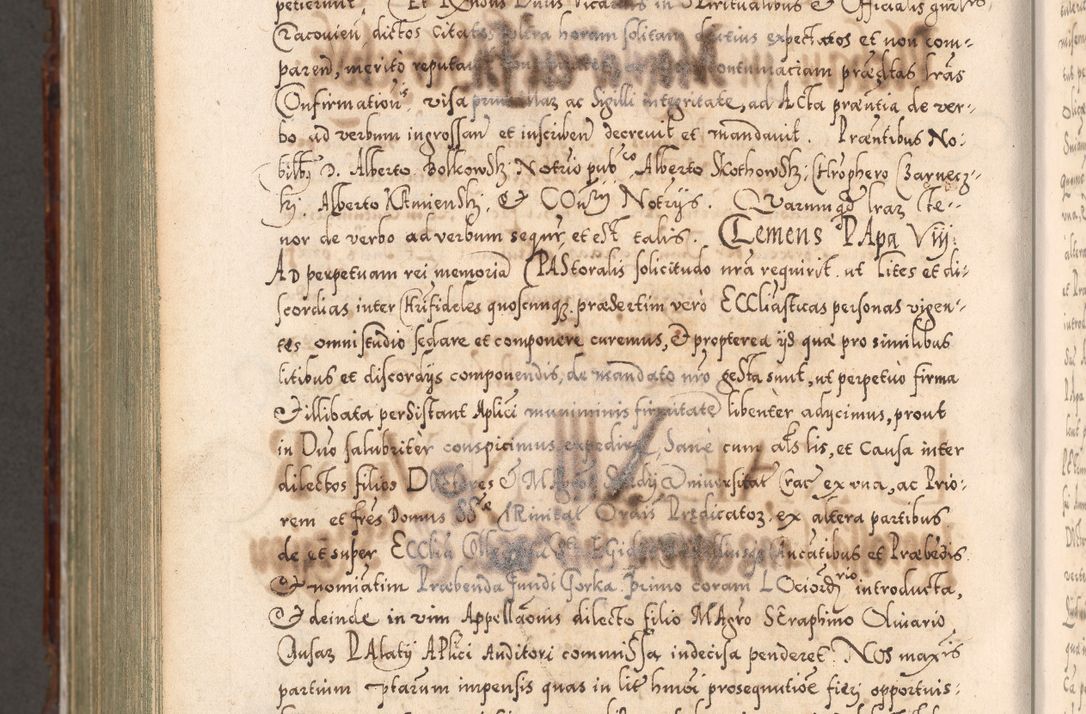 petierunt, Et Rndus Dnus Vicarius in Spiritualibus & Officialis gnrlis
Cracovien̄ dictos citatos ultra horam solitam diutius expectatos et non com-
paren̄, merito reputavit contumaciam prætās lrās
Confirmationis, visa prius illaz ac Sigilli integritate, ad Acta præntia de ver-
bo ad verbum ingrossan̄ et inscriben̄ decrevit et mandavit. Præntibus No-
bilibs D. Alberto Bolkowskj Notrio pubco Alberto Skothowskj Chrophero Czarnecz-
kj, Alberto Kamienskj, & COnsrij Notrijs. Quarumqd lraz te-
nor de verbo ad verbum sequr, et est talis. Clemens PApa Viij
AD perpetuam rei memoriā PAStoralis solicitudo nrā requirit, ut lites et di-
scordias inter Chrifideles quoscunqz præsertim vero ECCliasticas personas vigen-
tes omni studio sedare et componere curemus, & propterea ijs quæ pro similibus
litibus et discordijs componendis, de mandato nrō gesta sunt, ut perpetuo firma
& illibata persistant Aplici muniminis firmitatē libenter adijcimus, prout
in Dnō salubriter conspicimus expedire, Sane cum als lis, et causa inter
dilectos filios DOctores & MAgros Studij Universitat Crac ex una, ac Prio-
rem et frēs Domus SSte TRinitat Ordis Prædicatoz ex altera partibus
de et super Ecclia Aegidij incatibus et Præbedis
& nomiatim Præbenda fundi Gorka primo coram LOciordrio introducta,
& deinde in vim Appellaōnis dilecto filio MAgro SEraphino Olivario
Causaz PAlatij APlici Auditori commissa indecisa penderet. Nos maxis
partium ptarum impensis quos in lit hmōi prosequutiōe fieri opportuis-